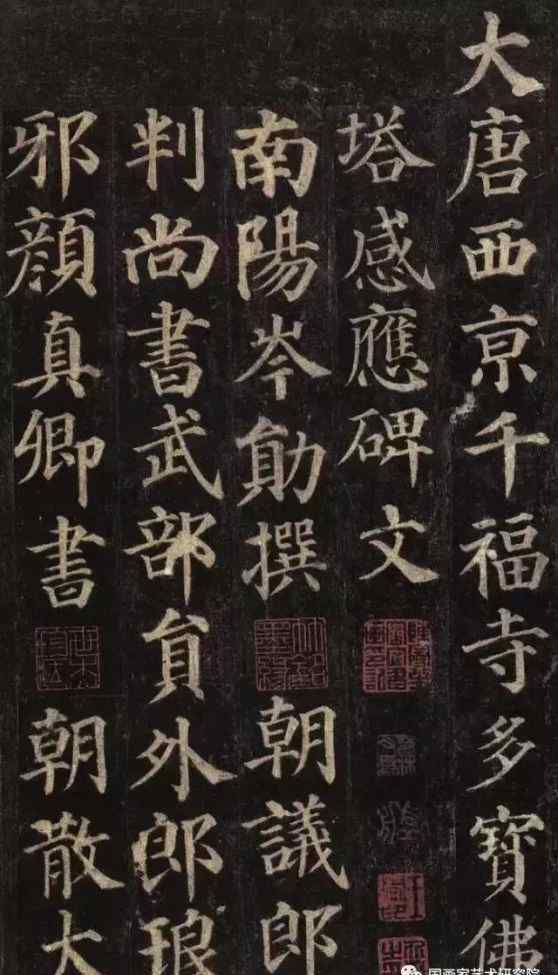 大唐西京千福寺多寶佛
塔感應碑文
南陽岑勛撰 朝議郎
判尚書武部員外郎琅
邪顏真卿書 朝散大
国画家艺术研究院